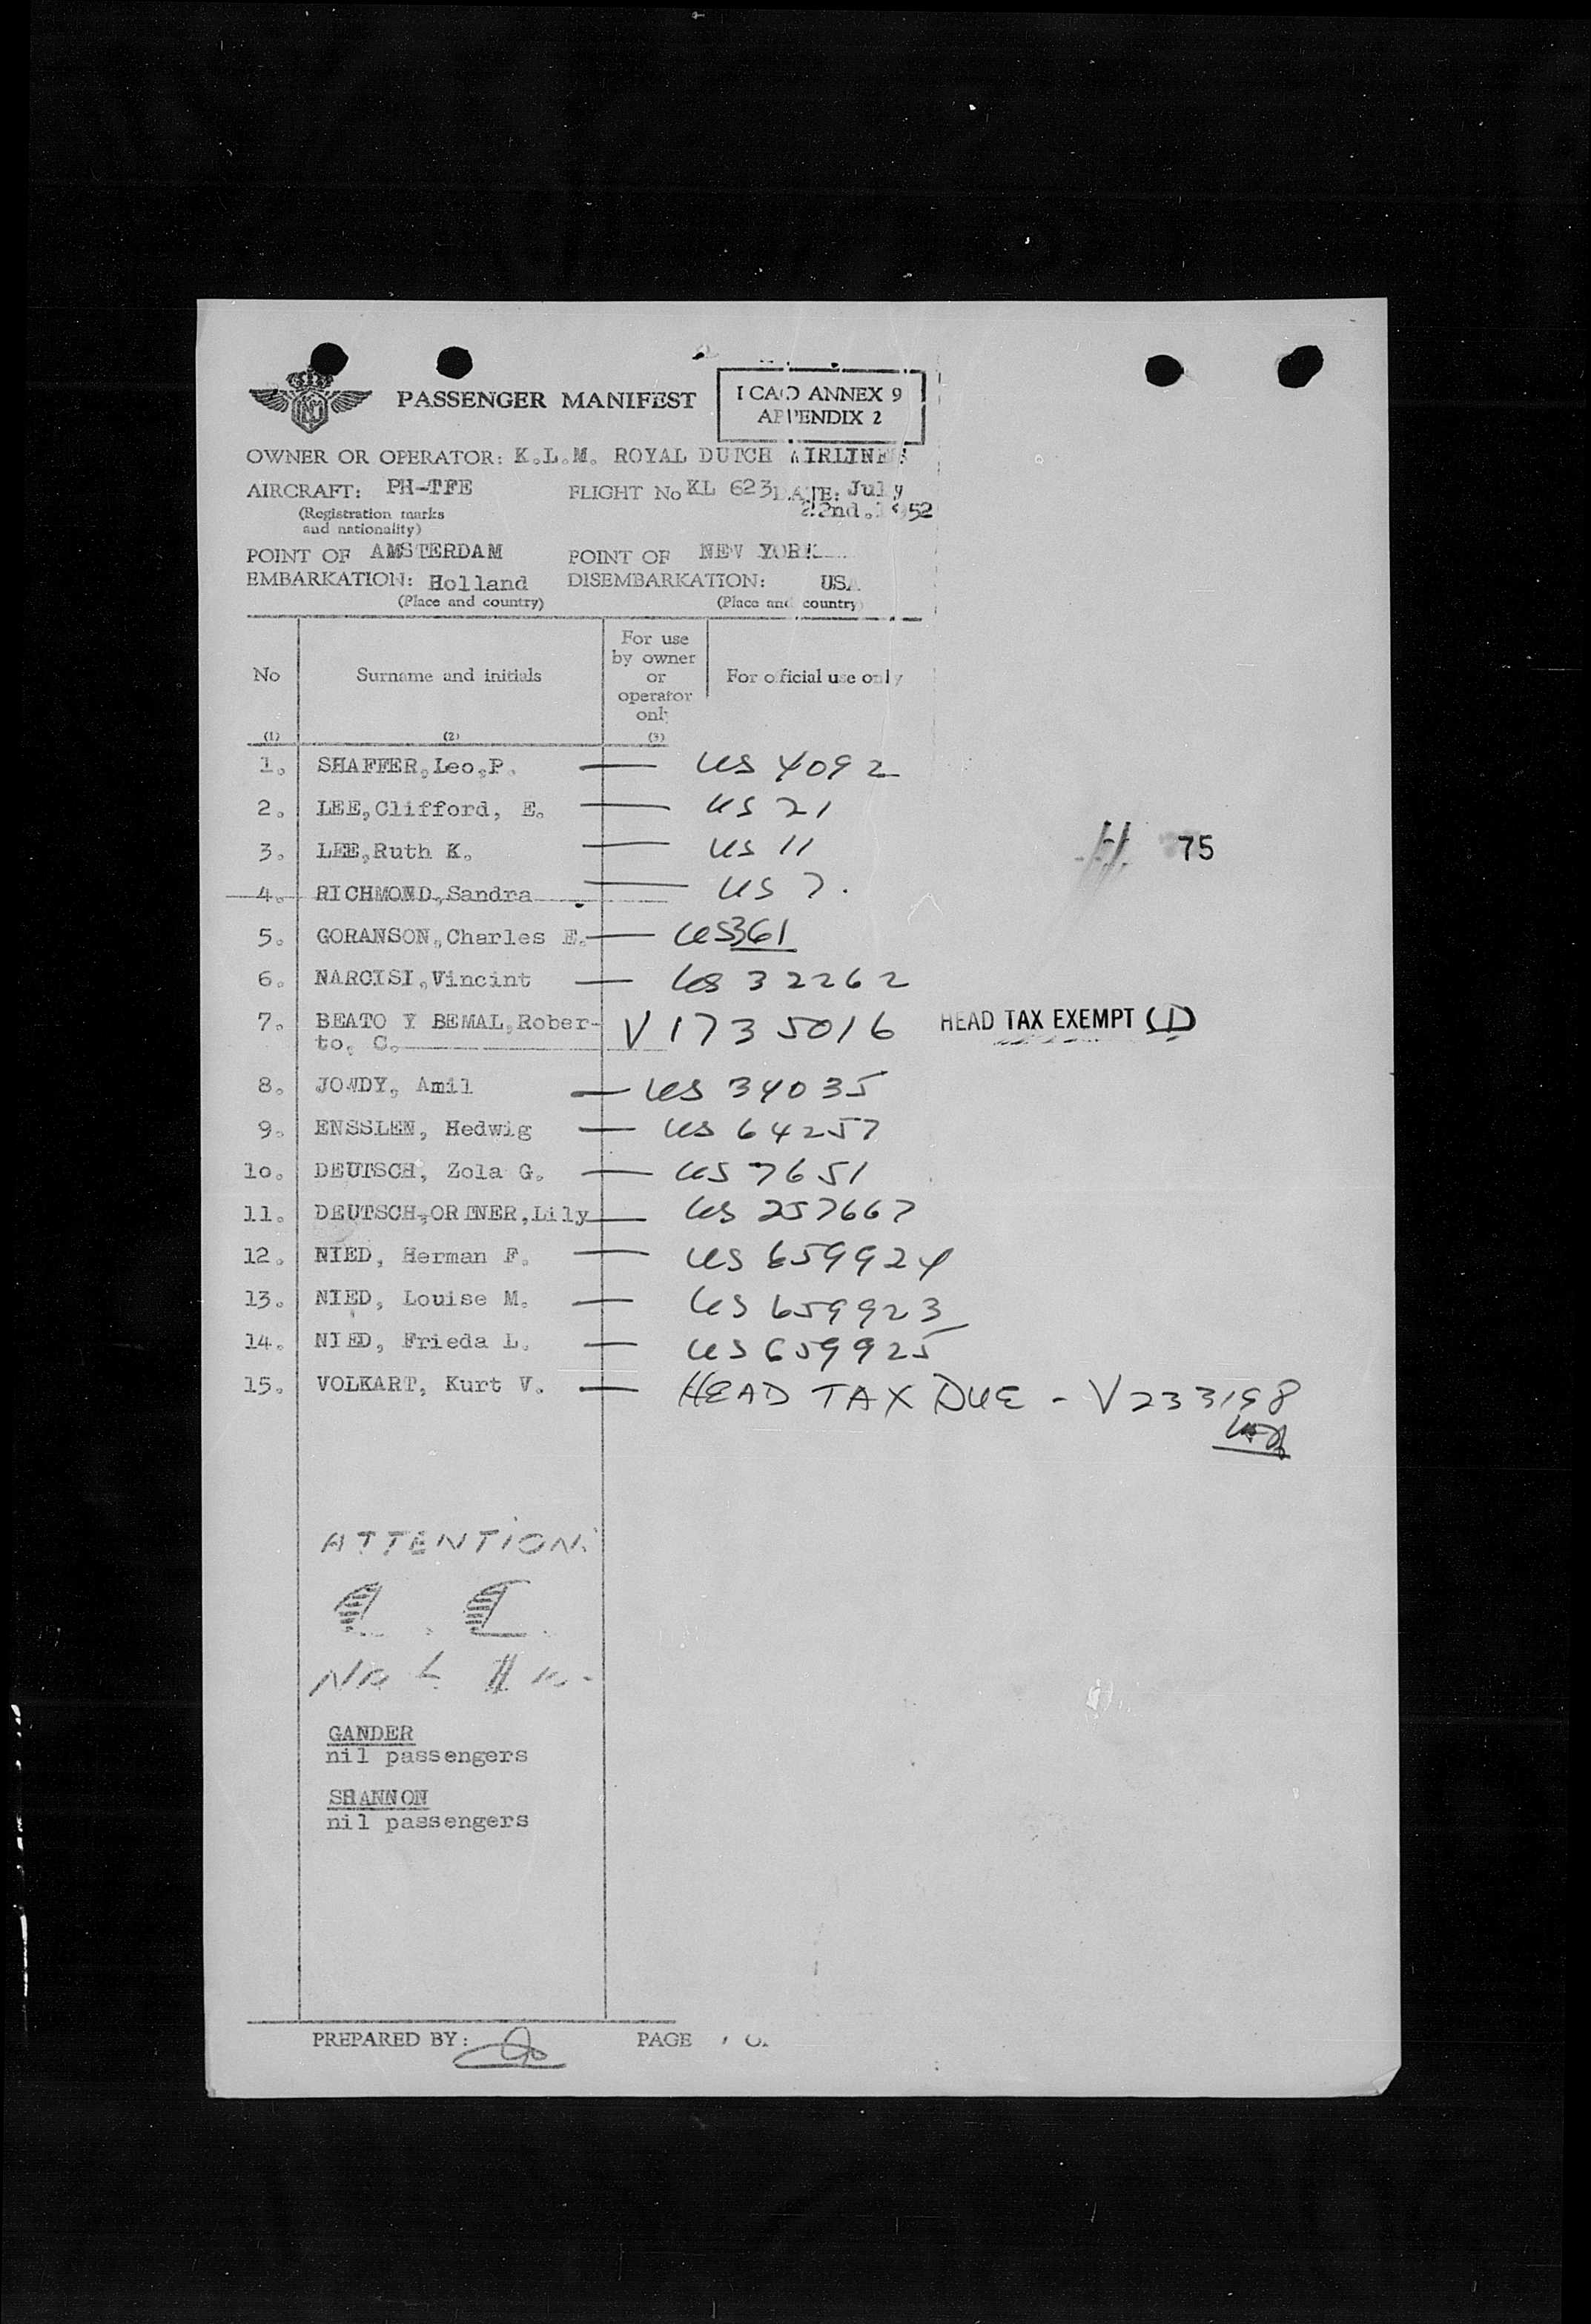 PASSENGER MANIFEST
ICAO ANNEX 9
APPENDIX 2
OWNER OR OPERATOR: K.L.M. ROYAL DUTCH AIRLINES
AIRCRAFT: PH-TFE FLIGHT No KL 623 DATE: July
(Registration marks 22nd.1952
and nationality)
POINT OF AMSTERDAM POINT OF NEW YORK
EMBARKATION: Holland DISEMBARKATION: USA
(Place and country) (Place and country)
No Surname and initials For use by owner or operator only For official use only
(1) (2) (3)
1. SHAFFER,Leo,P. — US 4092
2. LEE,Clifford, E. — US 21
3. LEE,Ruth K. — US 11
4. RICHMOND,Sandra — US 7.
H 75
5. GORANSON,Charles E. — US361
6. NARCISI,Vincint — US 32262
7. BEATO Y BEMAL,Rober- V 1735016 HEAD TAX EXEMPT (D)
to, C.
8. JOWDY, Amil — US 34035
9. ENSSLEN, Hedwig — US 64257
10. DEUTSCH, Zola G. — US 7651
11. DEUTSCH-ORTNER,Lily — US 257667
12. NIED, Herman F. — US 659924
13. NIED, Louise M. — US 659923
14. NIED, Frieda L. — US 659925
15. VOLKART, Kurt V. — HEAD TAX DUE - V 233198
ATTENTION:
GANDER
nil passengers
SHANNON
nil passengers
PREPARED BY: PAGE